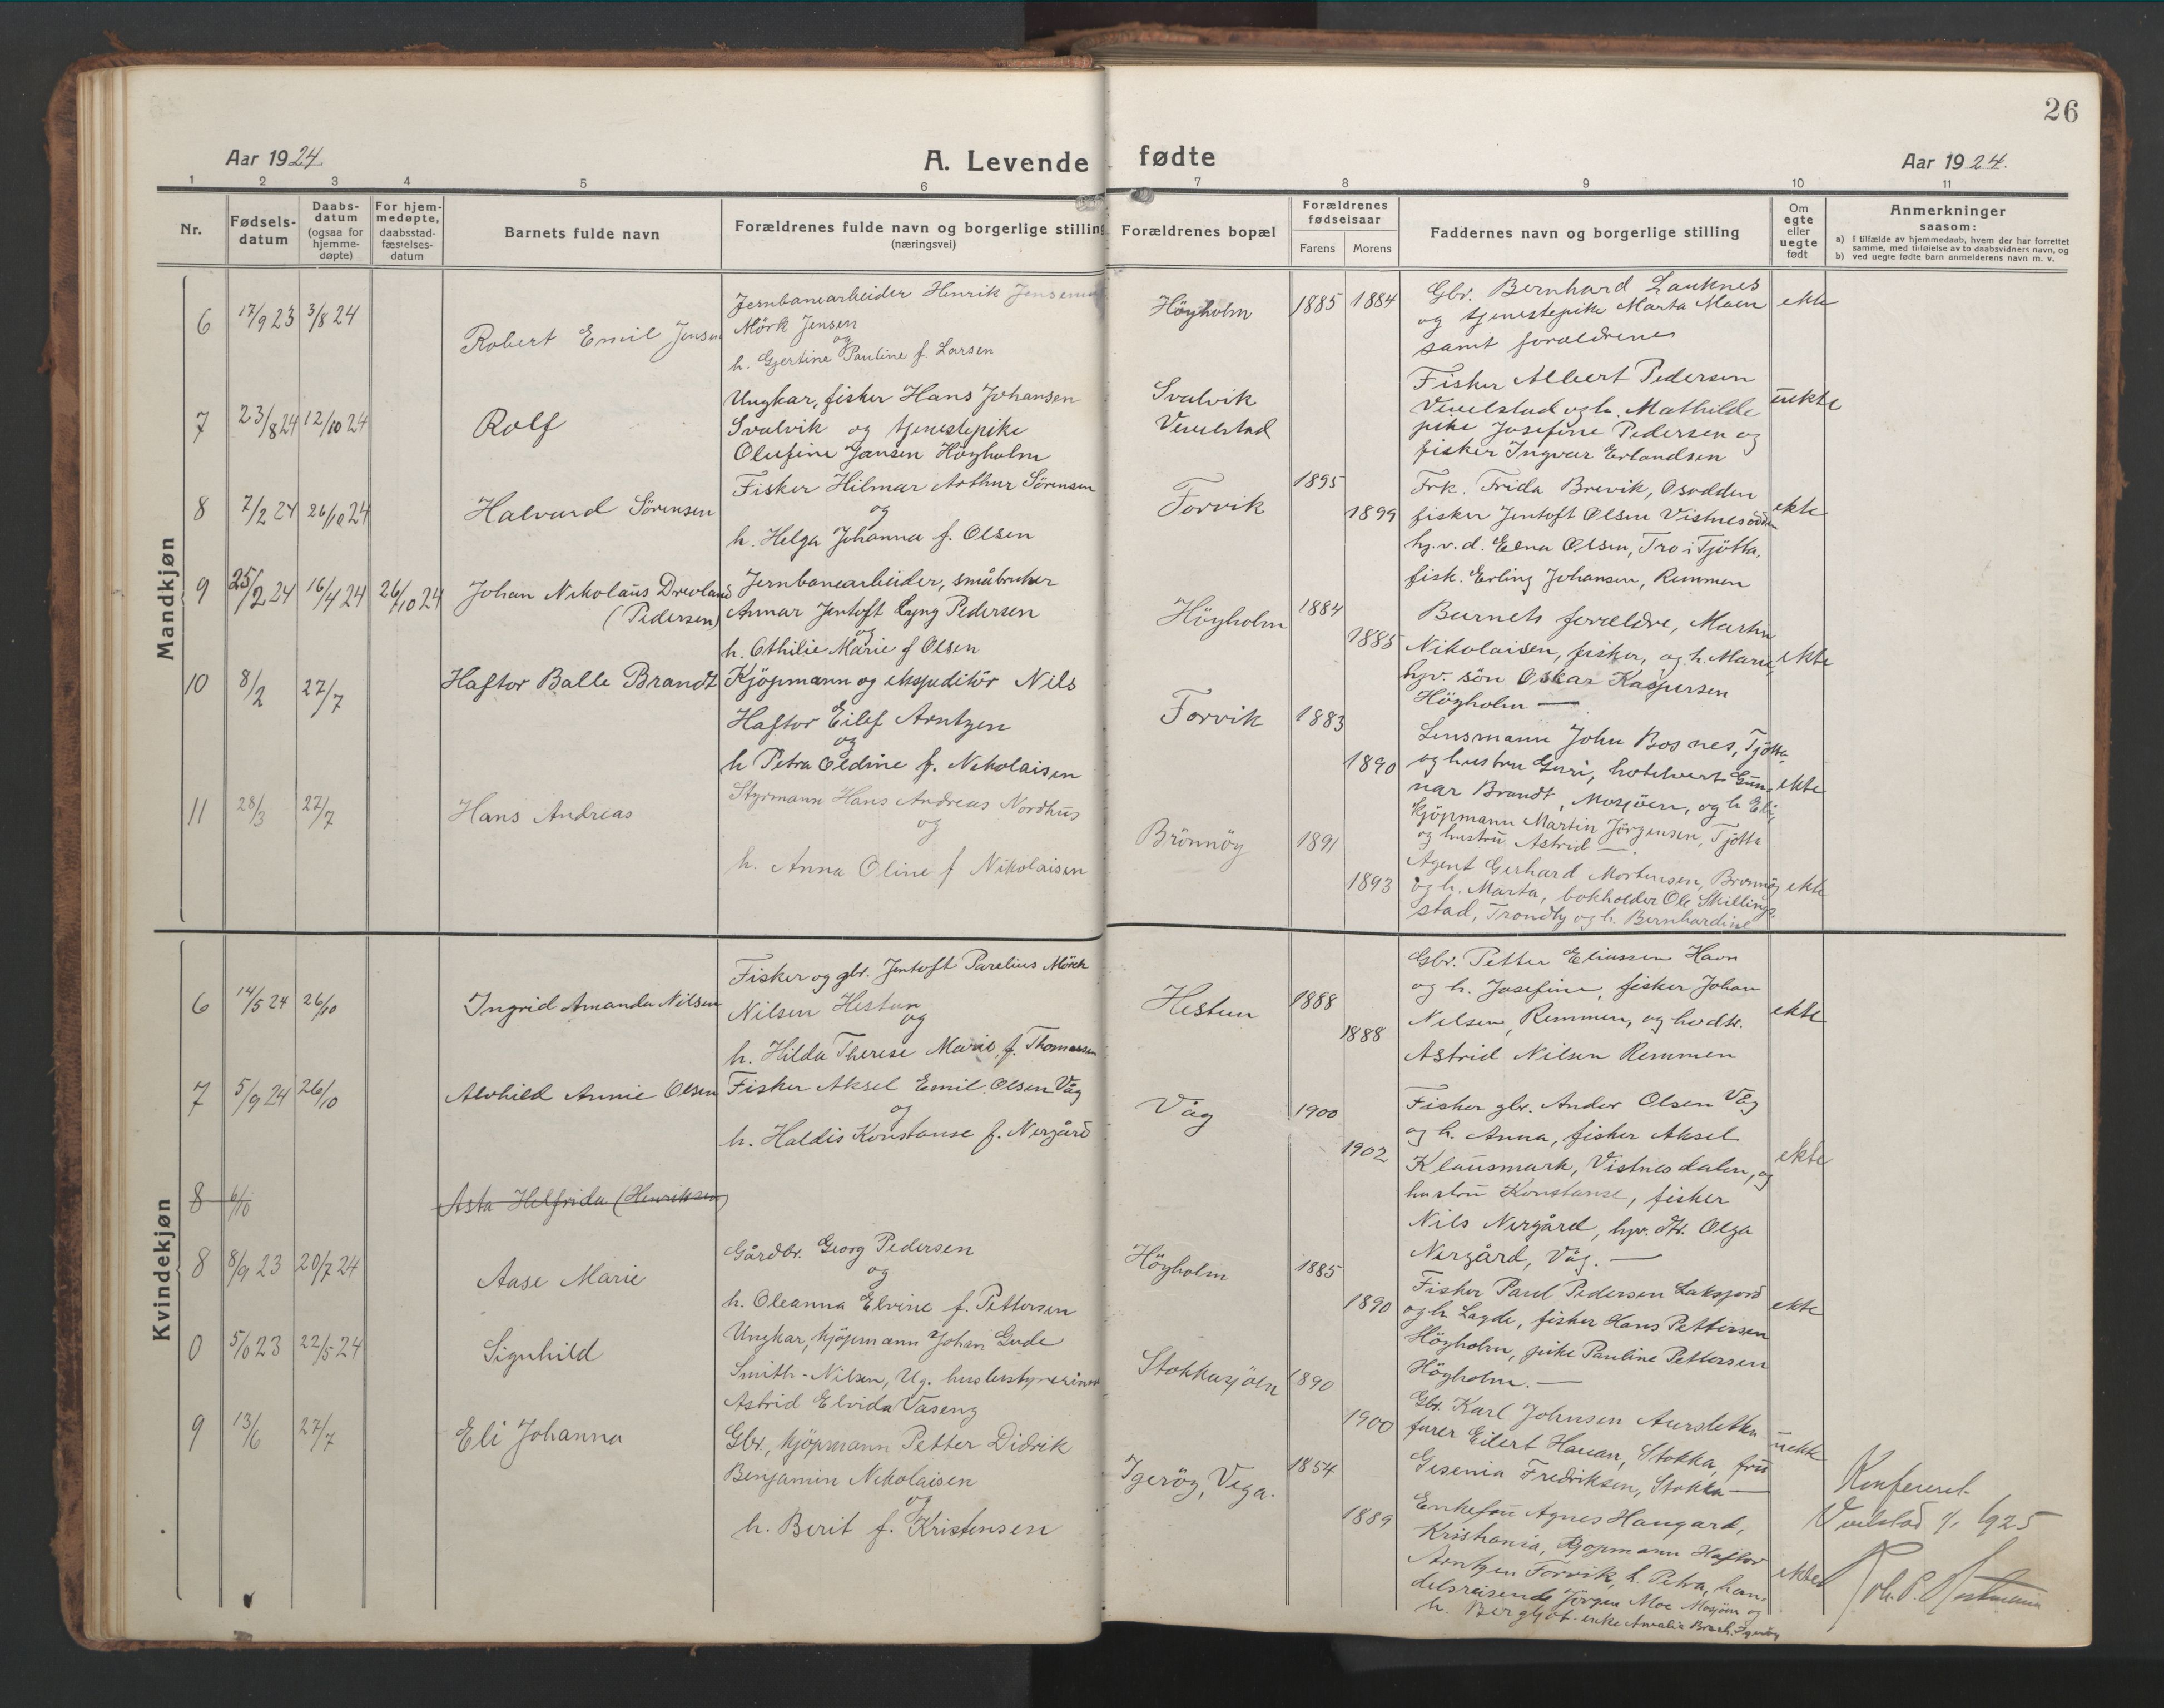 26
Aar 1924
A. Levende fødte
Aar 1924.
1 2 3 4 5 6 7 8 9 10 11
Nr.
Fødsels-
datum
Daabs-
datum
(ogsaa for
hjemme-
døpte)
For hjem-
medøpte,
daabsstad-
fæstelses-
datum
Barnets fulde navn
Forældrenes fulde navn og borgerlige stilling
(næringsvei)
Forældrenes bopæl
Forældrenes
fødselsaar
Farens Morens
Faddernes navn og borgerlige stilling
Om
egte
eller
uegte
født
Anmerkninger
saasom:
a) i tilfælde av hjemmedaab, hvem der har forrettet
samme, med tilføielse av to daabsvidners navn, og
b) ved uegte fødte barn anmelderens navn m. v.
Mandkjøn
6 17/9 23 3/8 24
Robert Emil Jensen
Jernbanearbeider Henrik Jensen
Mörk Jensen
og
h. Gjertine Pauline f. Larsen
Höyholm 1885 1884
Gbr. Bernhard Lauknes
og tjenestepike Marta Moen
samt forældrene
ekte
7 23/8 24 12/10 24
Rolf
Ungkar, fisker Hans Johansen
Svalvik og tjenestepike
Olufine Jansen Höyholm
Svalvik
Vevelstad
Fisker Albert Pedersen
Vevelstad og h. Mathilde
pike Josefine Pedersen og
fisker Ingvar Erlandsen
uekte
8 7/2 24 26/10 24
Halvard Sörensen
Fisker Hilmar Arthur Sörensen
og
h. Helga Johanna f. Olsen
Forvik 1895 1899
Frk. Frida Brevik, Osodden
fisker Jentoft Olsen Vistnesodden
hj.v.d. Elna Olsen, Tro i Tjötta,
fisk. Erling Johansen, Remmen
ekte
9 25/2 24 16/4 24 26/10 24
Johan Nikolaus Drevland
(Pedersen)
Jernbanearbeider, småbruker
Annar Jentoft Lyng Pedersen
og
h. Othilie Marie f Olsen
Höyholm 1884 1885
Barnets forældre, Martin
Nikolaisen, fisker, og h. Marie,
hjv. sön Oskar Kaspersen
Höyholm —
ekte
10 8/2 27/7
Haftor Balle Brandt
Kjöpmann og ekspeditör Nils
Haftor Eilef Arntzen
og
h Petra Oldine f. Nikolaisen
Forvik 1883 1890
Lensmann John Bosnes, Tjötta
og hustru Guri, hotelvert Gun-
nar Brandt, Mosjöen, og h Eli,
Kjöpmann Martin Jörgensen, Tjötta
og hustru Astrid —.
ekte
11 28/3 27/7
Hans Andreas
Styrmann Hans Andreas Nordhus
og
h. Anna Oline f Nikolaisen
Brönnöy 1891 1893
Agent Gerhard Mortensen, Brönnöy
og h. Marta, bokholder Ole Skillings-
stad, Trondhj og h. Bernhardine
ekte
Kvindekjøn
6 14/5 24 26/10
Ingrid Amanda Nilsen
Fisker og gbr. Jentoft Parelius Mörch
Nilsen Hestun
og
h. Hilda Therese Marie f. Thomassen
Hestun 1888 1888
Gbr. Petter Eliassen Havn
og h. Josefine, fisker Johan
Nilsen, Remmen, og hvdtr.
Astrid Nilsen Remmen
ekte
7 5/9 24 26/10
Alvhild Annie Olsen
Fisker Aksel Emil Olsen Våg
og
h. Haldis Konstanse f. Nergård
Våg 1900 1902
Fisker gbr. Ander Olsen Våg
og h. Anna, fisker Aksel
Klausmark, Vistnesdalen, og
hustru Konstanse, fisker
Nils Nergård, hjv. dtr. Olga
Nergård, Våg. —
ekte
8 6/10
Asta Helfrida (Henriksen)
8 8/9 23 20/7 24
Aase Marie
Gårdbr. Georg Pedersen
og
h. Oleanna Elvine f. Pettersen
Höyholm 1885 1890
Fisker Paul Pedersen Laksfjord
og h Lagde, fisker Hans Pettersen
Höyholm, pike Pauline Pettersen
Höyholm. —
ekte
0 5/10 23 22/5 24
Signhild
Ungkar, kjöpmann Johan Gude
Smith-Nilsen, Ug. husbestyrerinne
Astrid Elvida Vaseng
Stokkasjöen 1890 1900
Gbr. Karl Johnsen Aursletten
furer Eilert Hauan, Stokka, fru
Gesenia Fredriksen, Stokka —
uekte
9 13/6 27/7
Eli Johanna
Gbr., kjöpmann Petter Didrik
Benjamin Nikolaisen
og
h. Berit f. Kristensen
Igeröy, Vega. 1854 1889
Enkefru Agnes Haugard,
Kristiania, Kjöpmann Haftor
Arntzen Forvik, h. Petra, han-
delsreisende Jörgen Moe Mosjöen og
h. Bergljot. enke Amalie Brech. Igeröy
ekte
Konfereret
Vevelstad 1/1 1925
Joh. P.